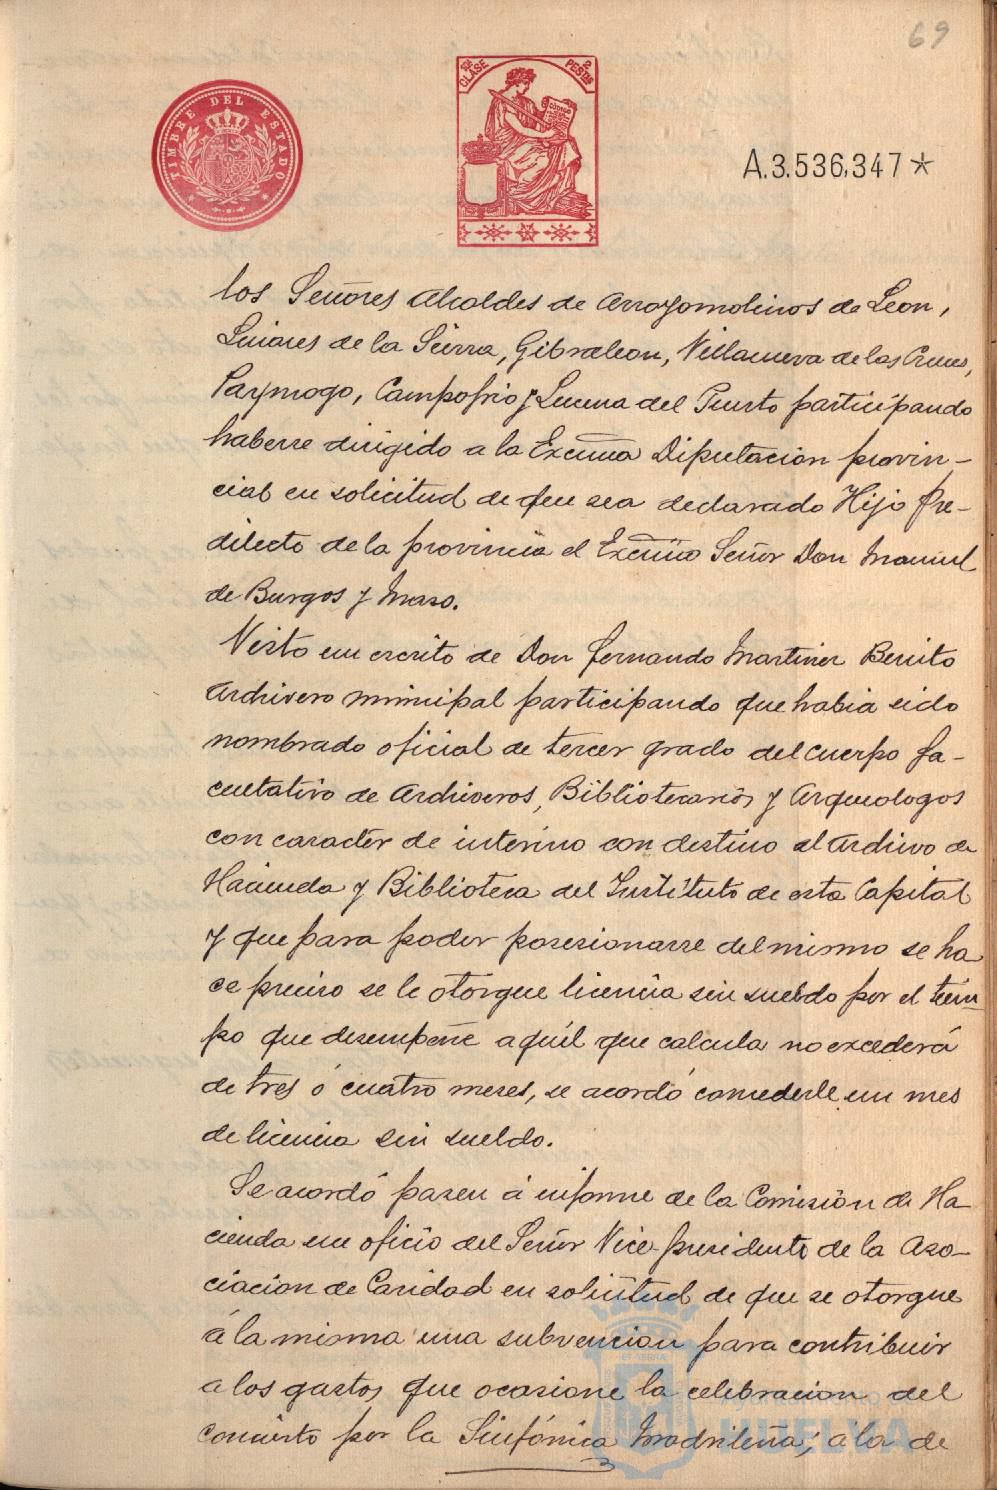 69
TIMBRE DEL ESTADO
10ª CLASE 2 PESTAS
CÓDIGO
A.3.536,347*
los Señores Alcaldes de Arroyomolinos de Leon,
Linares de la Sierra, Gibraleon, Villanueva de las Cruces,
Paymogo, Campofrio y Lucena del Puerto participando
haberse dirigido a la Excma Diputacion provin-
cial en solicitud de que sea declarado Hijo Pre-
dilecto de la provincia el Excmo Señor Don Manuel
de Burgos y Mazo.
Visto un escrito de Don Fernando Martinez Benito
Archivero municipal participando que habia sido
nombrado oficial de tercer grado del cuerpo fa-
cultativo de Archiveros, Bibliotecarios y Arqueologos
con caracter de interino con destino al Archivo de
Hacienda y Biblioteca del Instituto de esta Capital
y que para poder posesionarse del mismo se ha
ce preciso se le otorgue licencia sin sueldo por el tiem
po que desempeñe aquél que calcula no excederá
de tres ó cuatro meses, se acordó concederle un mes
de licencia sin sueldo.
Se acordó pasen á informe de la Comisión de Ha
cienda un oficio del Señor Vice-presidente de la Aso-
ciacion de Caridad en solicitud de que se otorgue
á la misma una subvencion para contribuir
a los gastos que ocasione la celebracion del
concierto por la Sinfónica Madrileña; á la de
Ayuntamiento de
HUELVA